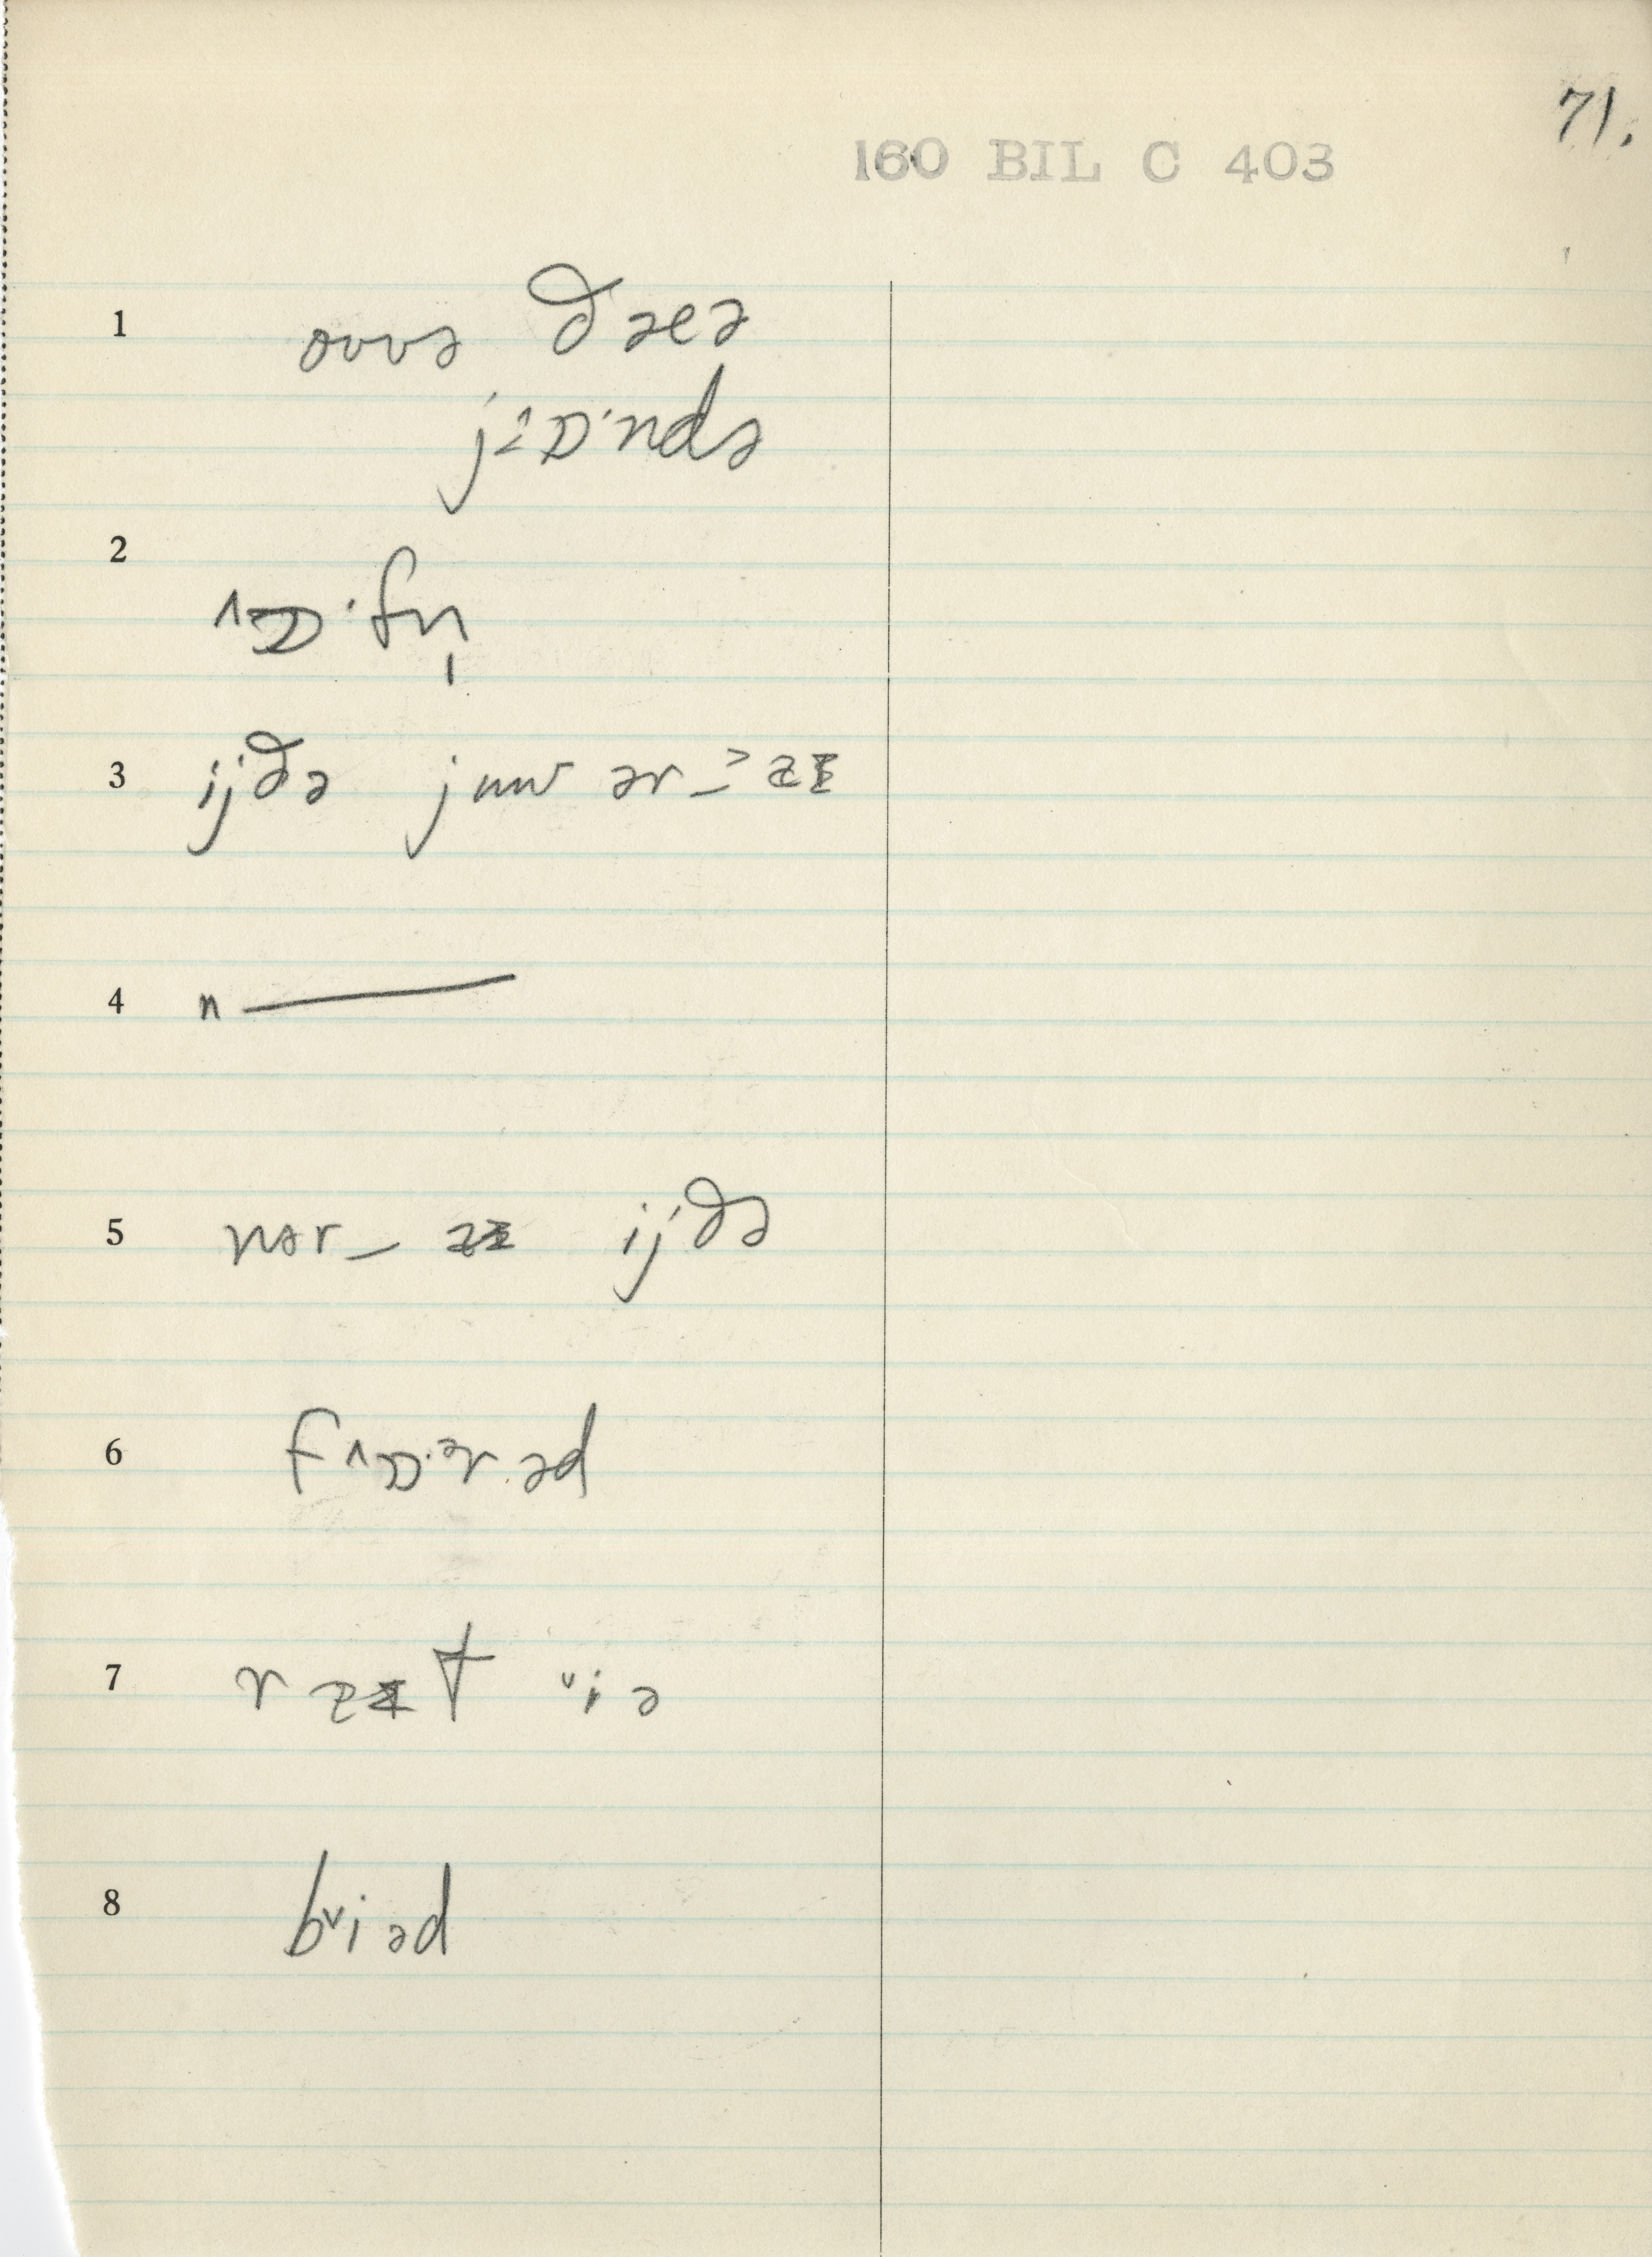 71.
160 BIL C 403
1 ovvə ðəeə
jɒ·ndə
2 ɒ·fn̩
3 ijðə j ər
4 n —
5 nər ijðə
6 fɒ·ᵊrəd
7 r t ᵛiə
8 bᵛiəd